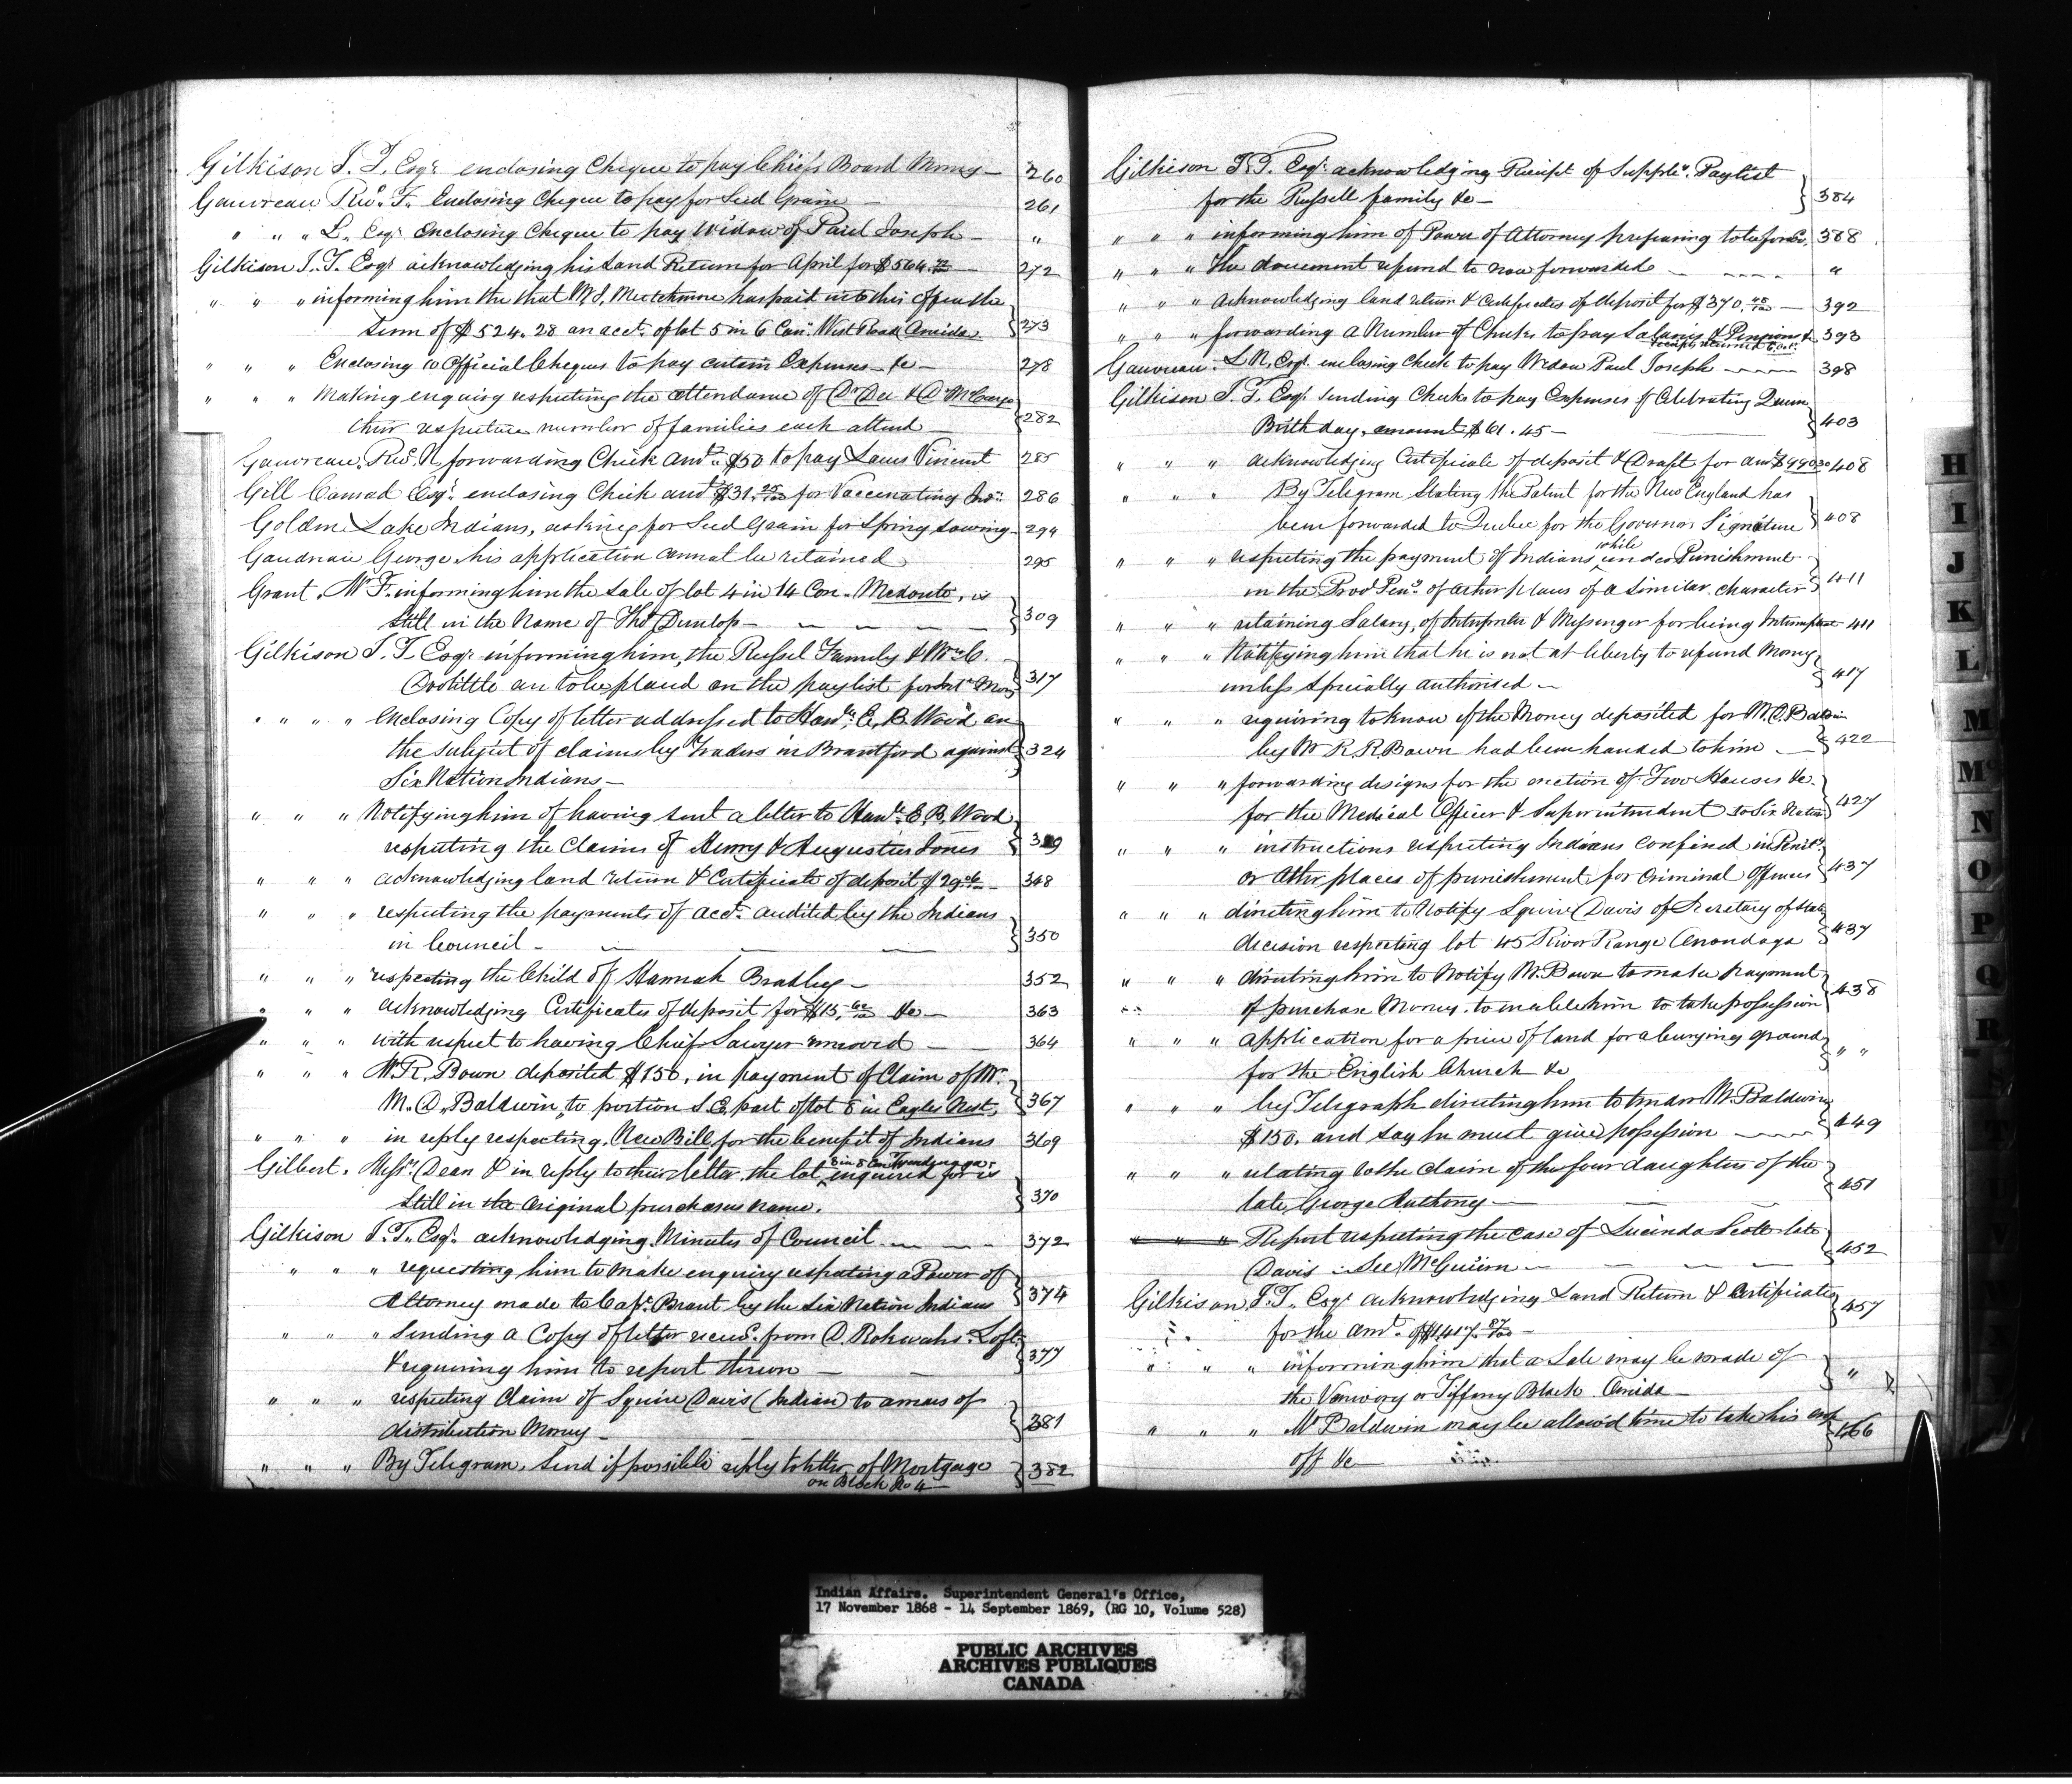 Gilkison J. T. Esqr. enclosing Cheque to pay Chiefs Board Money — 260
Gauvreau Revd. F. Enclosing Cheque to pay for Seed Grain — 261
" " " L. Esqr. enclosing Cheque to pay Widow of Paul Joseph — "
Gilkison J. T. Esqr. acknowledging his Land Return for April for $564 — 272
" " " informing him the that Mr S. has paid into this office the
sum of $524.28 on acct. of lot 5 in 6 Con. West Road Oneida 273
" " " Enclosing 10 Official Cheques to pay certain Expenses &c — 278
" " " Making enquiry respecting the attendance of Dr Dee & Dr McCargo
their respective number of families each attend — 282
Gauvreau, Revd. N. forwarding Check amt. $50 to pay Louis Vincent 285
Gill Conrad Esqr. enclosing Check amt $31.25/100 for Vaccinating Inds. 286
Golden Lake Indians, asking for Seed Grain for Spring Sowing 294
Gaudriau George, his application cannot be retained 295
Grant, Mr F. informing him the sale of lot 4 in 14 Con. Medonte, is
still in the Name of Thos Dunlop — 309
Gilkison J. T. Esqr. informing him, the Russel Family & Wm C.
Doolittle are to be placed on the paylist for Int. Mony 317
" " " enclosing Copy of letter addressed to Honble. E. B. Wood on
the subject of claims by Traders in Brantford against 324
Six Nation Indians —
" " " Notifying him of having sent a letter to Honble. E. B. Wood
respecting the Claims of Henry & Augustus Jones
" " " acknowledging land return & Certificate of deposit $29 — 348
" " " respecting the payments of acct. audited by the Indians
in Council — 350
" " " respecting the Child of Hannah Bradley — 352
" " " acknowledging Certificates of deposit for $15. &c — 363
" " " with respect to having Chief Sawyer removed — 364
" " " W. R. Bown deposited $150, in payment of Claim of Mr.
M. D. Baldwin, to portion S.E. part of lot 8 in Eagles Nest, 367
" " " in reply respecting, New Bill for the benefit of Indians 369
Gilbert, Messrs. Dean & in reply to their letter, the lot 8 in 8 Con Tyendinaga inquired for is
still in the Original purchasers name. 370
Gilkison J. T. Esqr. acknowledging Minutes of Council — 372
" " " requesting him to make enquiry respecting a Power of
Attorney made to Capt. Brant by the Six Nation Indians 374
" " " Sending a Copy of letter recd. from D. Rohwahs Loft
& requiring him to report thereon — 377
" " " respecting Claim of Squire Davis (Indian) to arrears of
distribution Money — 381
" " " By Telegram, Send if possible reply to letter of Mortgage
on Block No 4 — 382
Gilkison J. T. Esqr. acknowledging Receipt of Supple. Paylist
for the Russell family &c — 384
" " " informing him of Power of Attorney preparing to be forwd. 388
" " " The document referred to now forwarded — "
" " " Acknowledging land return & Certificates of deposit for $370.48/100 — 392
" " " forwarding a Number of Checks to pay Salaries & Pensions & 393
Gauvreau L. N. Esqr. enclosing Check to pay Widow Paul Joseph — 398
Gilkison J. T. Esqr. sending Checks to pay Expenses of Celebrating Queens
Birthday, amount $61.45 — 403
" " " acknowledging Certificate of deposit & Draft for amt $990.30 408
" " " By Telegram Stating the Patent for the New England has
been forwarded to Quebec for the Governors Signature 408
" " " respecting the payment of Indians while under Punishment
in the Provl Peny. or other places of a similar character 411
" " " retaining Salary, of Interpreter & Messenger for being Intemperate 411
" " " Notifying him that he is not at liberty to refund Money
unless specially authorised — 417
" " " requiring to know if the Money deposited for M. D. Baldwin
by Mr R. R. Bown had been handed to him — 422
" " " forwarding designs for the erection of Two Houses &c.
for the Medical Officer & Superintendent to Six Nation 427
" " " instructions respecting Indians confined in Penity.
or other places of punishment for Criminal Offences 437
" " " directing him to Notify Squire Davis of Secretary of State
decision respecting lot 45 River Range Onondaga 437
" " " directing him to Notify Mr. Bown to make payment
of purchase Money, to enable him to take possession 438
" " " application for a piece of land for a burying ground
for the English Church &c " "
" " " by Telegraph directing him to tender Mr. Baldwin
$150. and say he must give possession — 449
" " " relating to the claim of the four daughters of the
late George Anthony — 451
" " " Report respecting the case of Lucinda Scott late
Davis — See McGuinn — 452
Gilkison J. T. Esqr. acknowledging Land Return & Certificate
for the Amt. of $1417.87/100 — 457
" " " informing him that a Sale may be made of
the or Tiffany Block Oneida — "
" " " Mr Baldwin may be allowed time to take his crop
off &c — 466
H
I
J
K
L
M
Mc
N
O
P
Q
R
Indian Affairs. Superintendent General's Office,
17 November 1868 - 14 September 1869, (RG 10, Volume 528)
PUBLIC ARCHIVES
ARCHIVES PUBLIQUES
CANADA